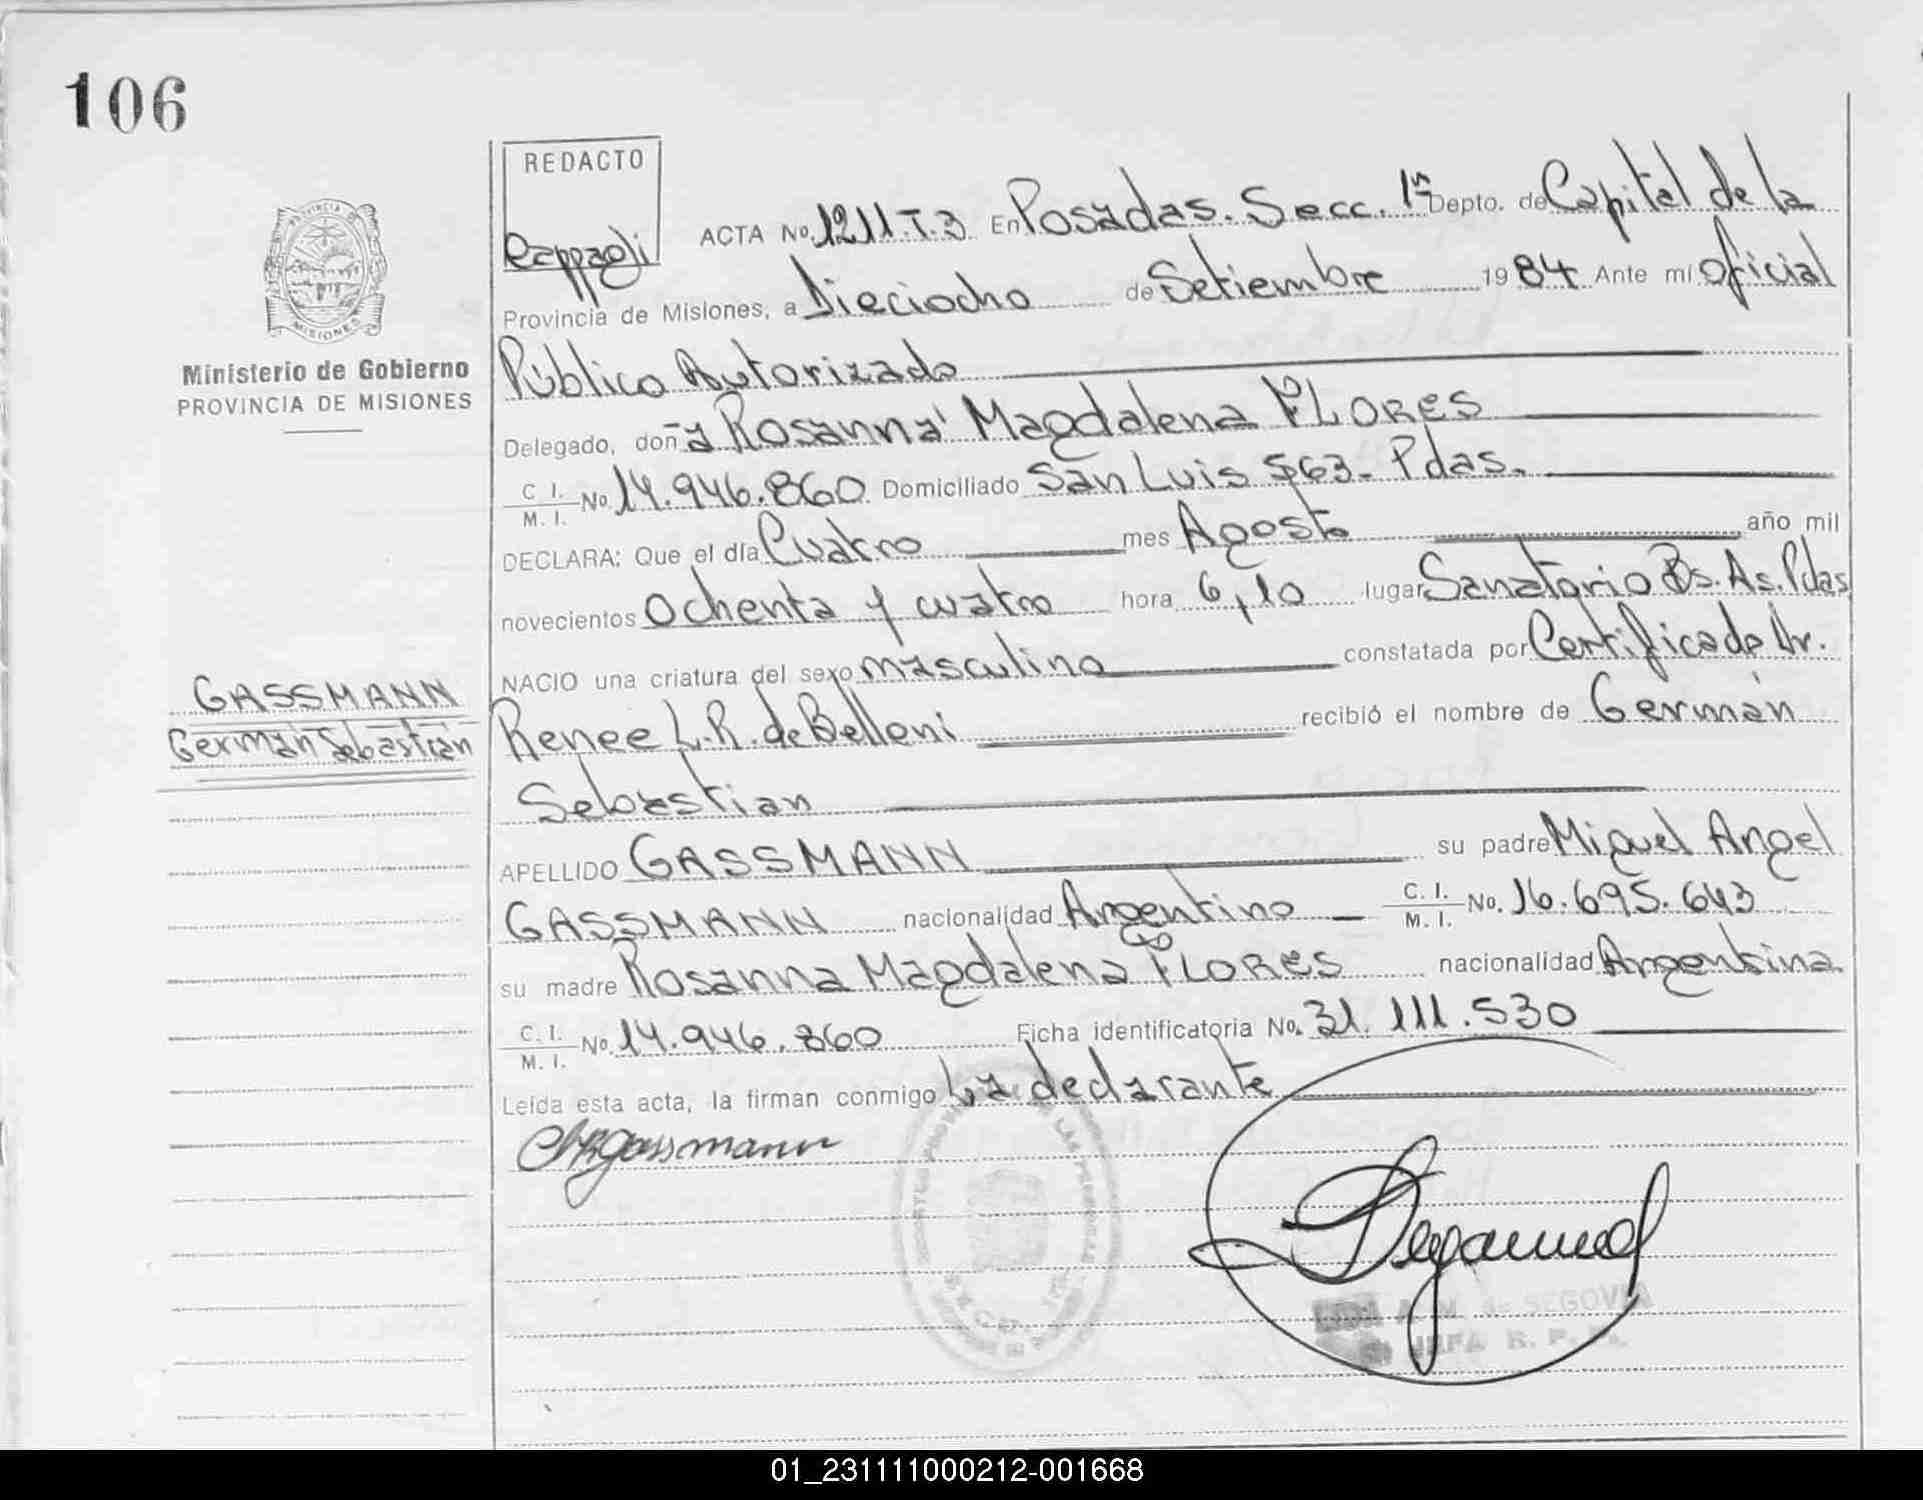 106
REDACTO
Rappaoli
ACTA No. 1211-T.3 En Posadas. Secc. 1ª Depto. de Capital de la
Provincia de Misiones, a Dieciocho de Setiembre 1984 Ante mí Oficial
Público Autorizado
Delegado, doña Rosanna Magdalena FLORES
C. I. / M. I. No. 14.946.860 Domiciliado San Luis 563- Pdas.
DECLARA: Que el día Cuatro mes Agosto año mil
novecientos Ochenta y cuatro hora 6,10 lugar Sanatorio Bs. As. Pdas
NACIO una criatura del sexo masculino constatada por Certificado Dr.
Renee L.R. de Belloni recibió el nombre de Germán
Sebastian
APELLIDO GASSMANN su padre Miguel Angel
GASSMANN nacionalidad Argentino C. I. / M. I. No. 16.695.643
su madre Rosanna Magdalena FLORES nacionalidad Argentina
C. I. / M. I. No. 14.946.860 Ficha identificatoria No. 31.111.530
Leída esta acta, la firman conmigo La declarante
PROVINCIA DE
MISIONES
Ministerio de Gobierno
PROVINCIA DE MISIONES
GASSMANN
Germán Sebastian
de SEGOVIA
JEFA R. P.
01_231111000212-001668